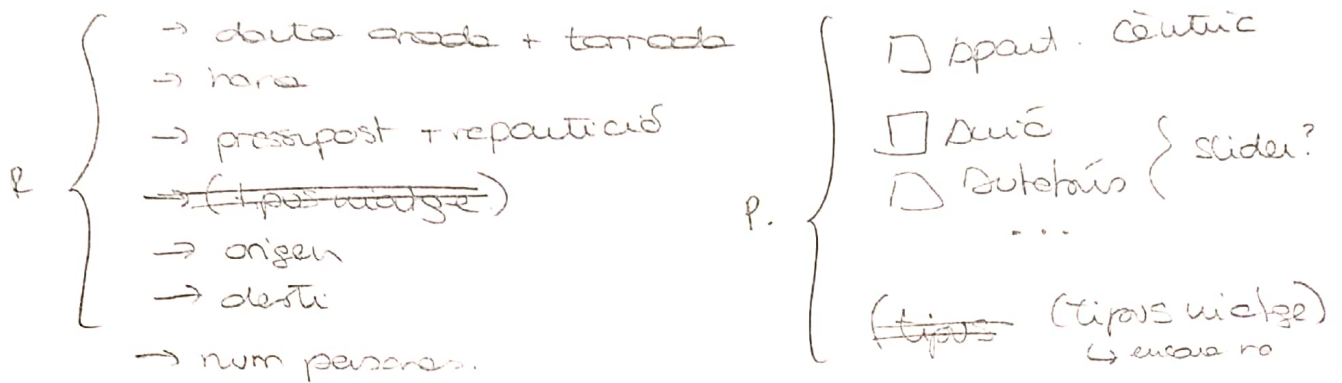 R
→ data anada + tornada
→ hora
→ pressupost + repartició
→ (tipus viatge)
→ origen
→ destí
→ num persones.
P.
□ Apart. cèntric
□ Avió
□ Autobús
slider?
...
(tipus (tipus viatge)
↳ encara no